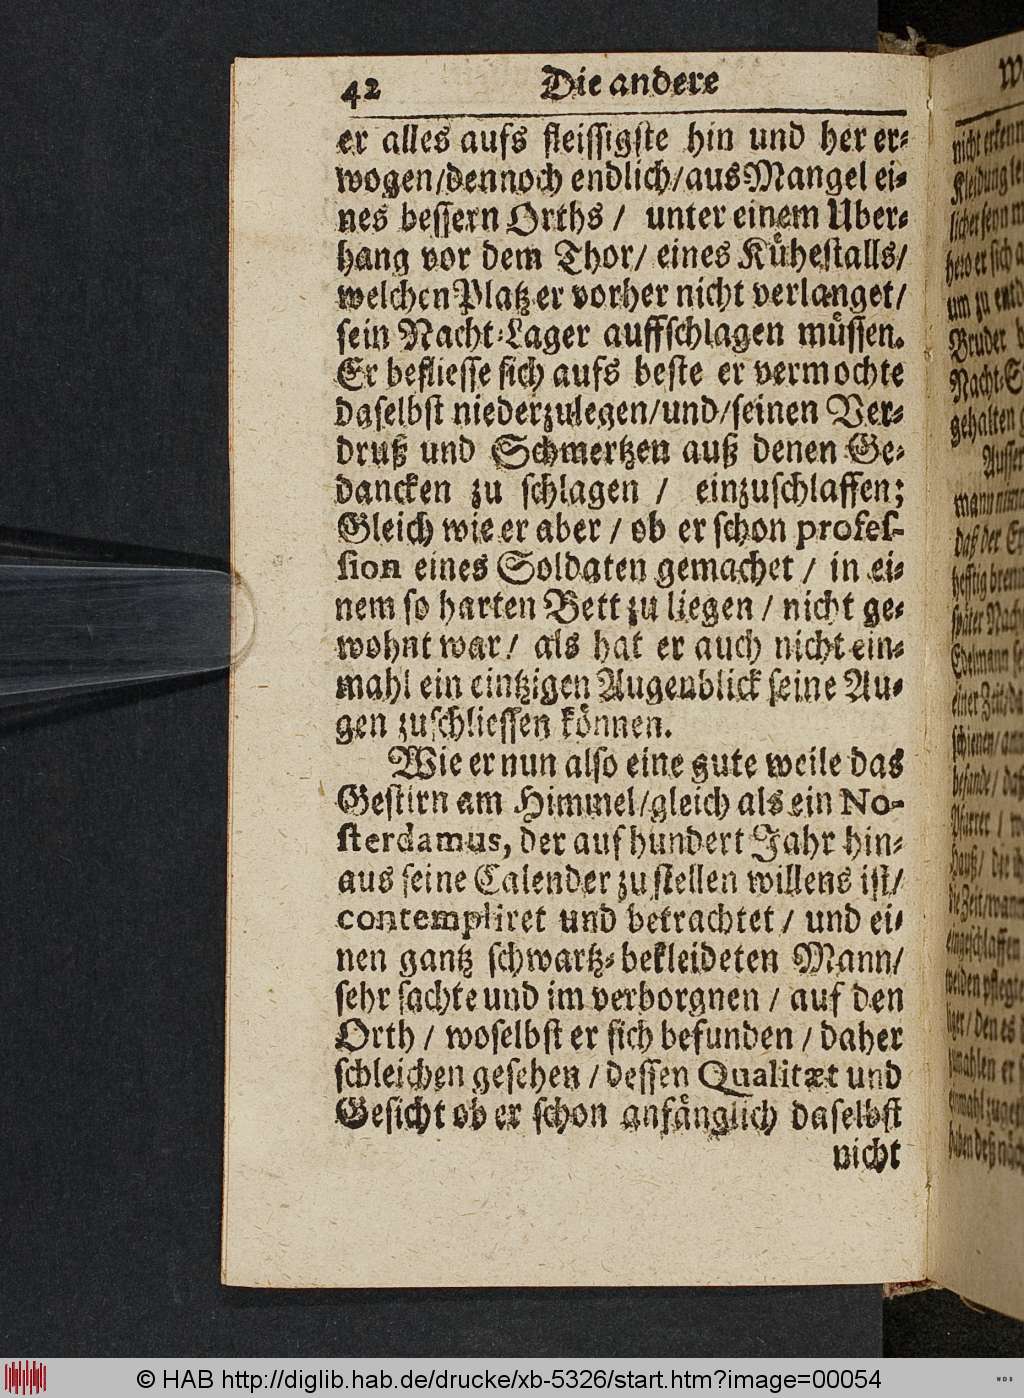 42 Die andere
er alles aufs fleissigste hin und her er-
wogen/dennoch endlich/aus Mangel ei-
nes bessern Orths / unter einem Uber-
hang vor dem Thor/ eines Kůhestalls/
welchen Platz er vorher nicht verlanget/
sein Nacht-Lager auffschlagen můssen.
Er befliesse sich aufs beste er vermochte
daselbst niederzulegen/und/seinen Ver-
druß und Schmertzen auß denen Ge-
dancken zu schlagen / einzuschlaffen;
Gleich wie er aber / ob er schon profes-
sion eines Soldaten gemachet / in ei-
nem so harten Bett zu liegen / nicht ge-
wohnt war / als hat er auch nicht ein-
mahl ein eintzigen Augenblick seine Au-
gen zuschliessen können.
Wie er nun also eine gute weile das
Gestirn am Himmel/gleich als ein No-
sterdamus, der auf hundert Jahr hin-
aus seine Calender zu stellen willens ist/
contempliret und betrachtet / und ei-
nen gantz schwartz-bekleideten Mann/
sehr sachte und im verborgnen / auf den
Orth / woselbst er sich befunden / daher
schleichen gesehen / dessen Qualitæt und
Gesicht ob er schon anfänglich daselbst
nicht
W
nicht erkenn
Kleidung
um zu
Bruder
Nacht-
gehalten
Ausser
daß der
später Nach
Edelmann
einer Zeit
Pfarrer /
die Zeit/
eingeschlaffen
© HAB http://diglib.hab.de/drucke/xb-5326/start.htm?image=00054